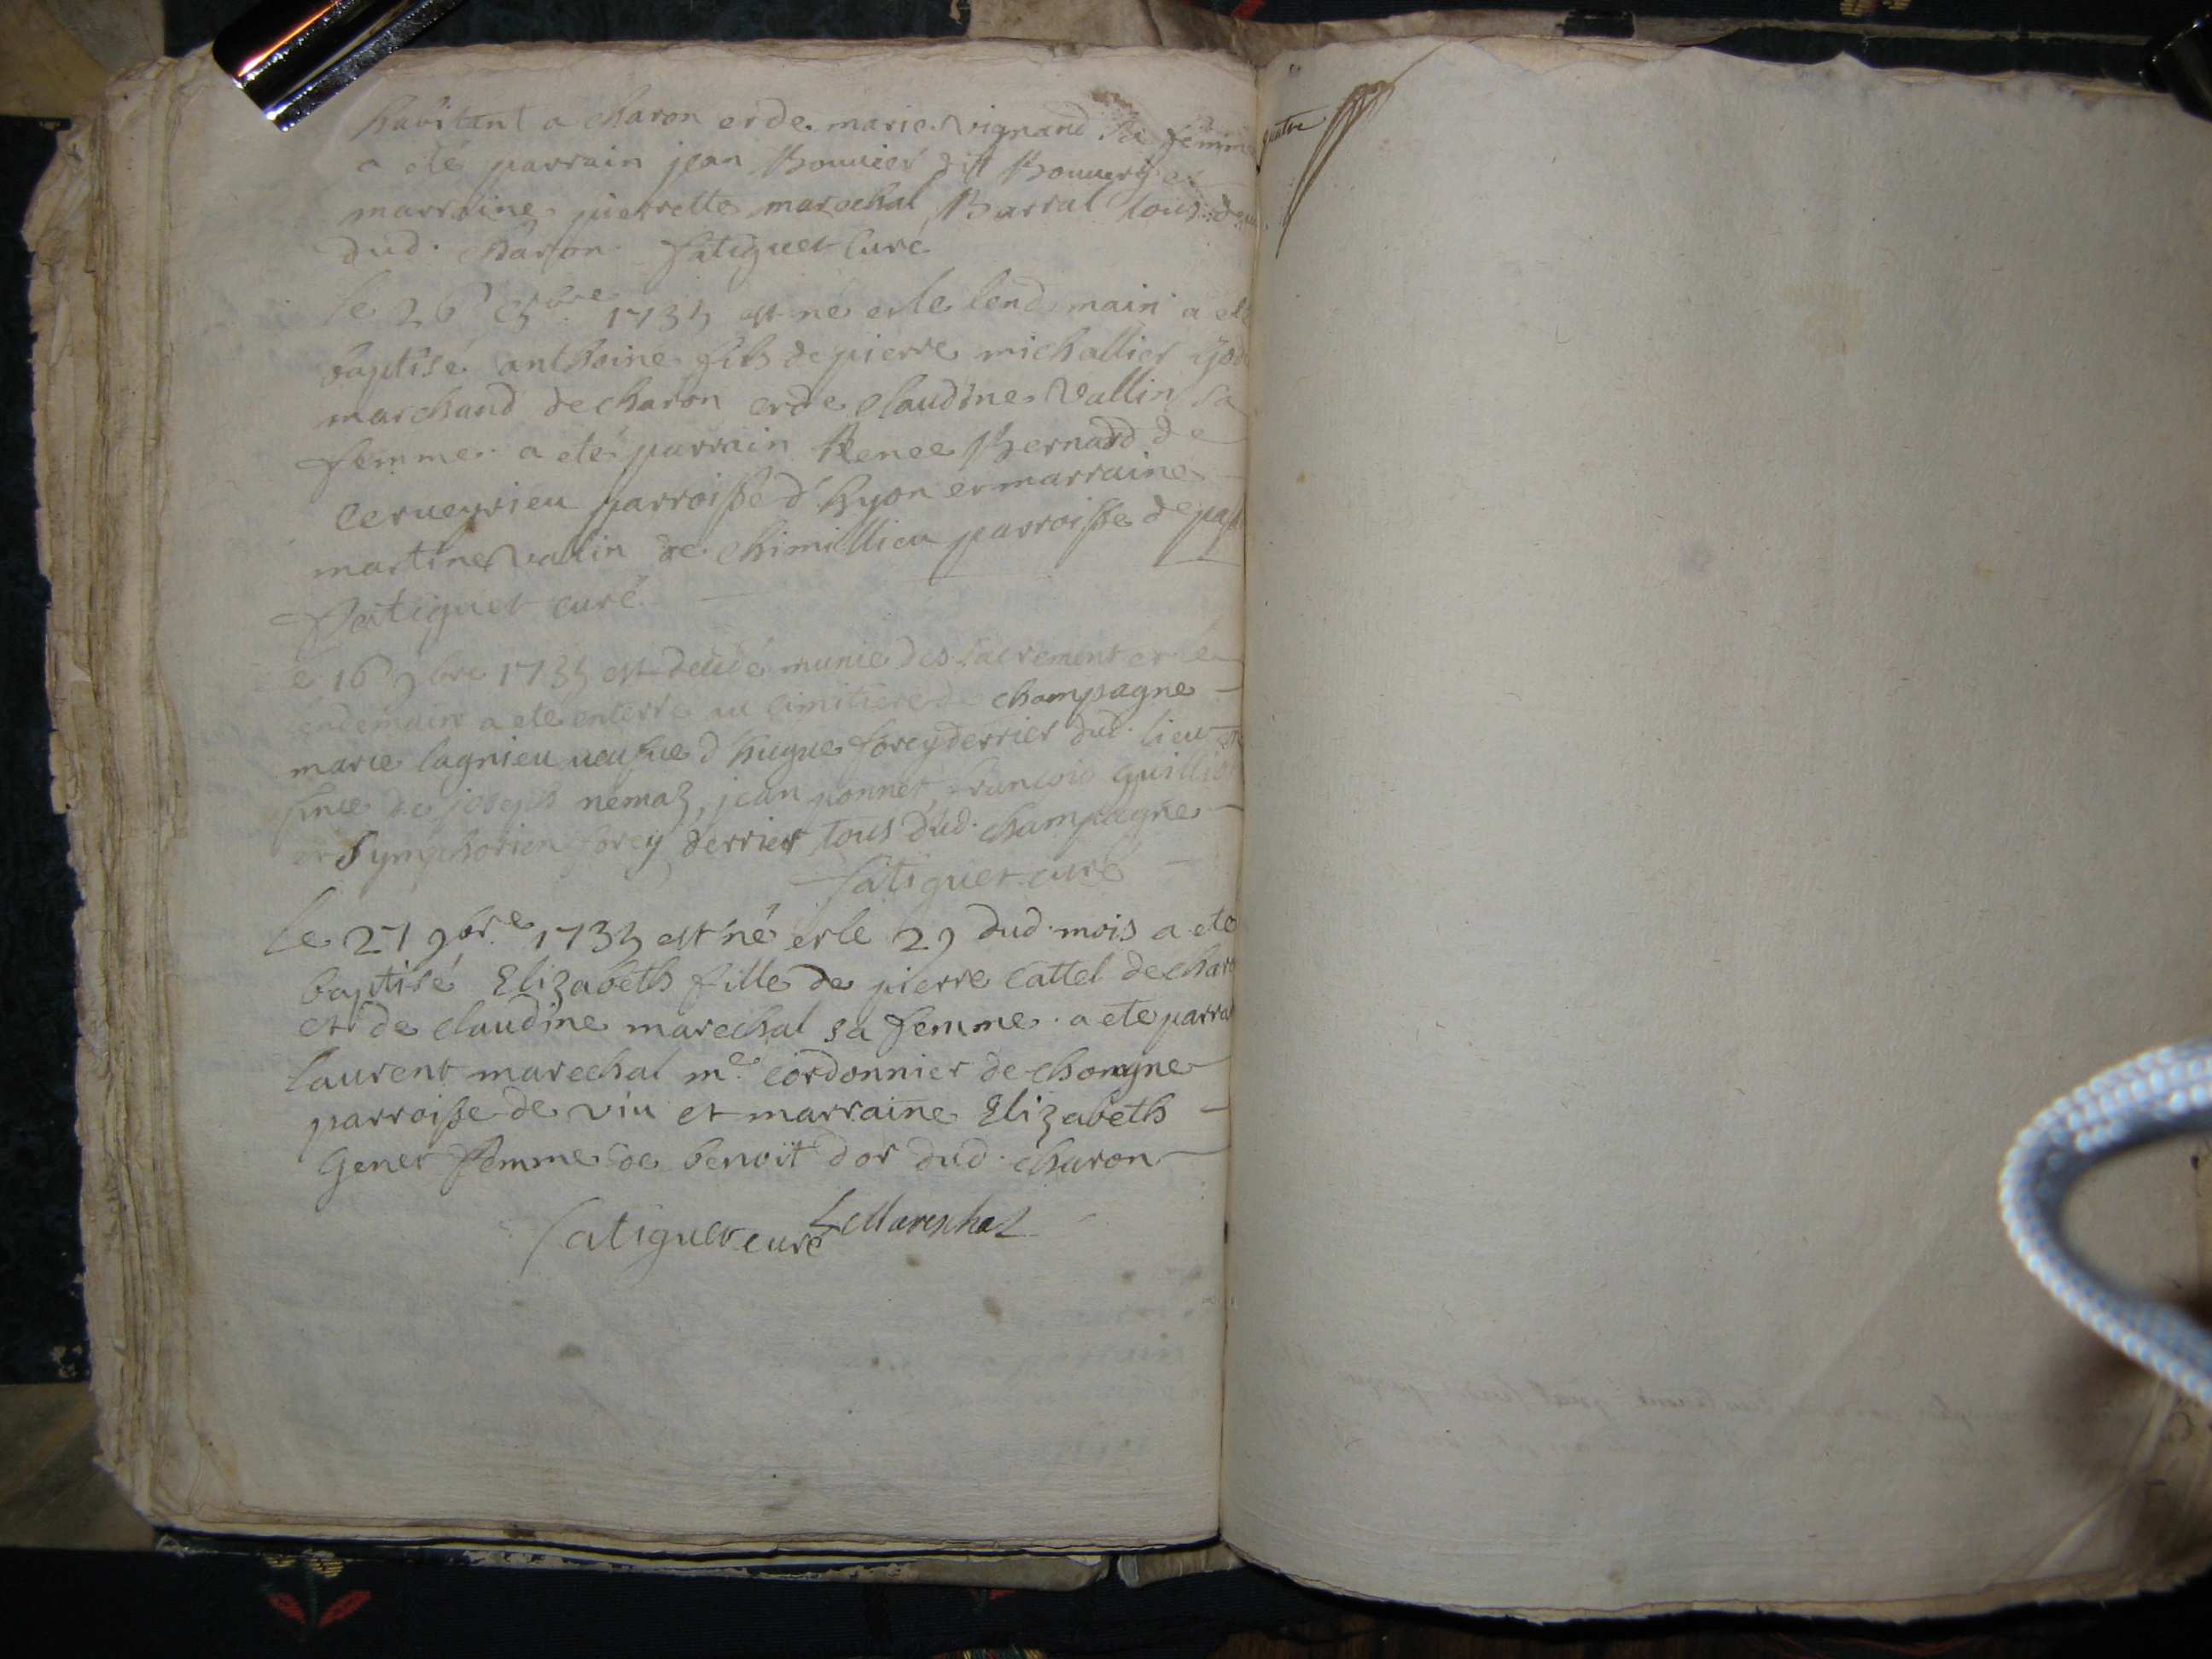 habitant a charon et de marie vignand sa femme
a eté parrain jean Bouvier dit Bouvert et
marraine pierrette marechal Barral tous deux
dud. charon fatiguet curé
le 26 8bre 1735 est né et le lendemain a eté
baptisé anthoine fils de pierre michallier
marchand de charon et de claudine Vallin sa
femme a eté parrain Renee Bernard de
cerveyrieu parroisse d'hyon et marraine
martine vallin de chimillieu parroisse de
fatiguet curé
le 16 9bre 1735 est decedé munie des sacrement et le
lendemain a ete enterré au cimitiere de champagne
marie lagnieu veufve d'hugue forey derrier dud. lieu
de joseph nemaz, jean ponnet francois guilliot
et Symphorien forey derrier tous dud. champagne
fatiguet curé
le 27 9bre 1735 est né et le 29 dud. mois a ete
baptisé Elizabeth fille de pierre cattel de char
et de claudine marechal sa femme a ete parra
laurent marechal me. cordonnier de chongne
parroisse de viu et marraine Elizabeth
Genet femme de benoit dor dud. charon
fatiguet curé L Mareschal
quatre